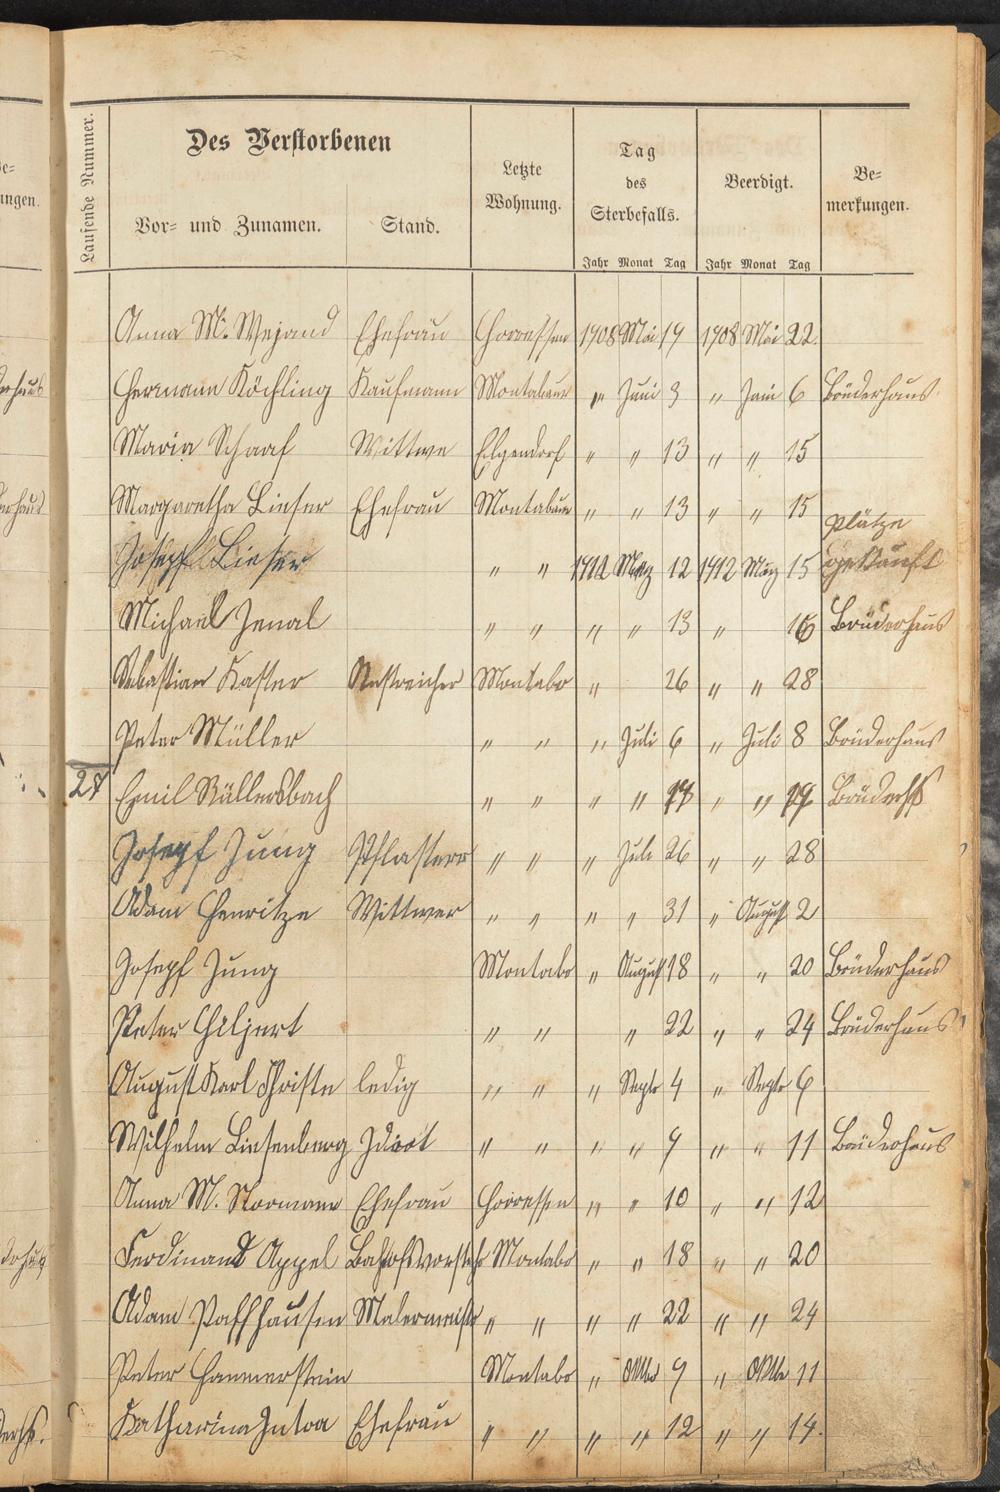 Laufende Nummer.
Des Verstorbenen
Vor= und Zunamen.
Stand.
Letzte
Wohnung.
Tag
des
Sterbefalls.
Beerdigt.
Be=
merkungen.
Jahr Monat Tag Jahr Monat Tag
Anna M. Wejand Ehefrau Horressen 1908 Mai 19 1908 Mai 22.
Hermann Köchling Kaufmann Montabaur " Juni 3 " Juni 6 Brüderhaus
Maria Schaaf Wittwe Elgendorf " " 13 " " 15
Margaretha Lieser Ehefrau Montabaur " " 13 " " 15
Plätze
Joseph Lieser " " 1912 März 12 1912 März 15 gekauft
Michael Jenal " " " " 13 " 16 Brüderhaus
Sebastian Kaster Anstreicher Montabr " 26 " " 28
Peter Müller " " " Juli 6 " Juli 8 Brüderhaus
27 Emil Rüllersbach " " " " " " Brüderhs
Josepf Jung Pflasterer " " " Juli 26 " " 28
Adam Henritze Wittwer " " " " 31 " August 2
Josepf Jung Montabr " August 18 " " 20 Brüderhaus
Peter Hiljert " " " 22 " " 24 Brüderhaus
August Karl Christe ledig " " " Septr 4 " Septr 6
Wilhelm Liesenberg Idiot " " " " 9 " " 11 Brüderhaus
Anna M. Normann Ehefrau Horressen " " 10 " " 12
Ferdinand Appel Bahnhofsvorsteher Montabr " " 18 " " 20
Adam Paffhausen Malermeistr " " " " 22 " " 24
Peter Hammerstein Montabr " Oktbr 9 " Oktbr 11
Katharina Ehefrau " " " " 12 " " 14.